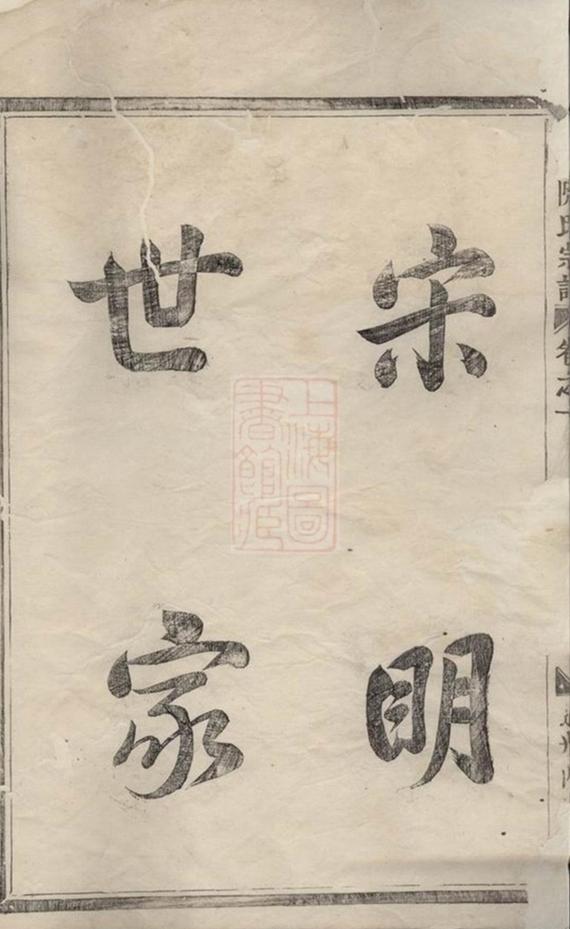 宋明
世家
氏宗譜
卷之一
上海圖
書館藏